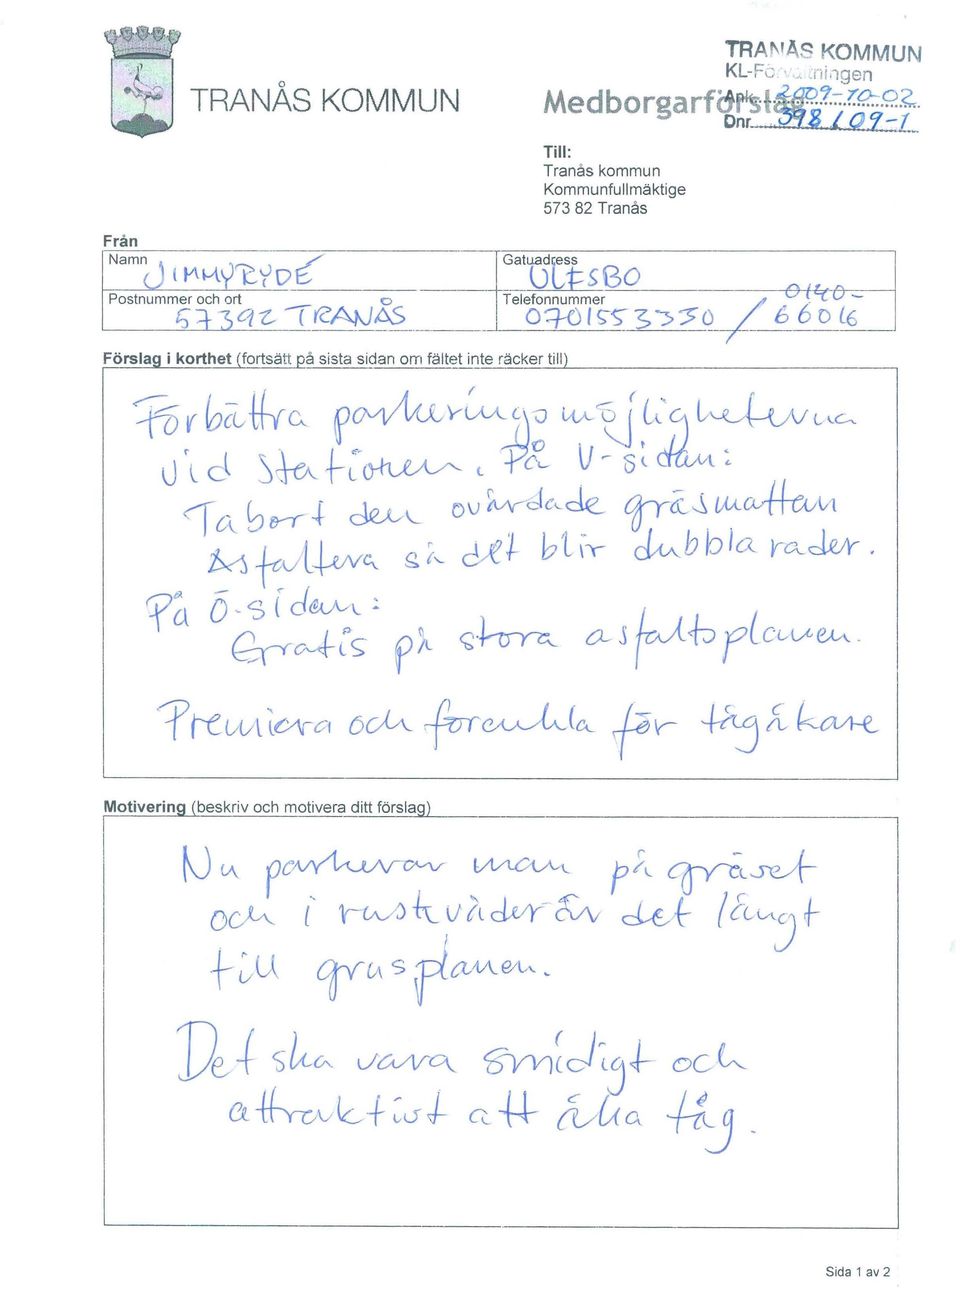 TRANÅS KOMMUN
TRANÅS KOMMUN
KL-Förvaltningen
Medborgarförslag
Ank. 2009-10-02
Dnr 398/09-1
Till:
Tranås kommun
Kommunfullmäktige
573 82 Tranås
Från
Namn
JIMMY RYDÉ
Gatuadress
ULFSBO
Postnummer och ort
57392 TRANÅS
Telefonnummer
0701553330 / 0140-66016
Förslag i korthet (fortsätt på sista sidan om fältet inte räcker till)
Förbättra parkeringsmöjligheterna
vid Stationen. På V-sidan:
Ta bort den ovårdade gräsmattan
Asfaltera så det blir dubbla rader.
På Ö-sidan:
Gratis på stora asfaltsplanen.
Premiera och förenkla för tågåkare
Motivering (beskriv och motivera ditt förslag)
Nu parkerar man på gräset
och i ruskväder är det långt
till grusplanen.
Det ska vara smidigt och
attraktivt att åka tåg.
Sida 1 av 2